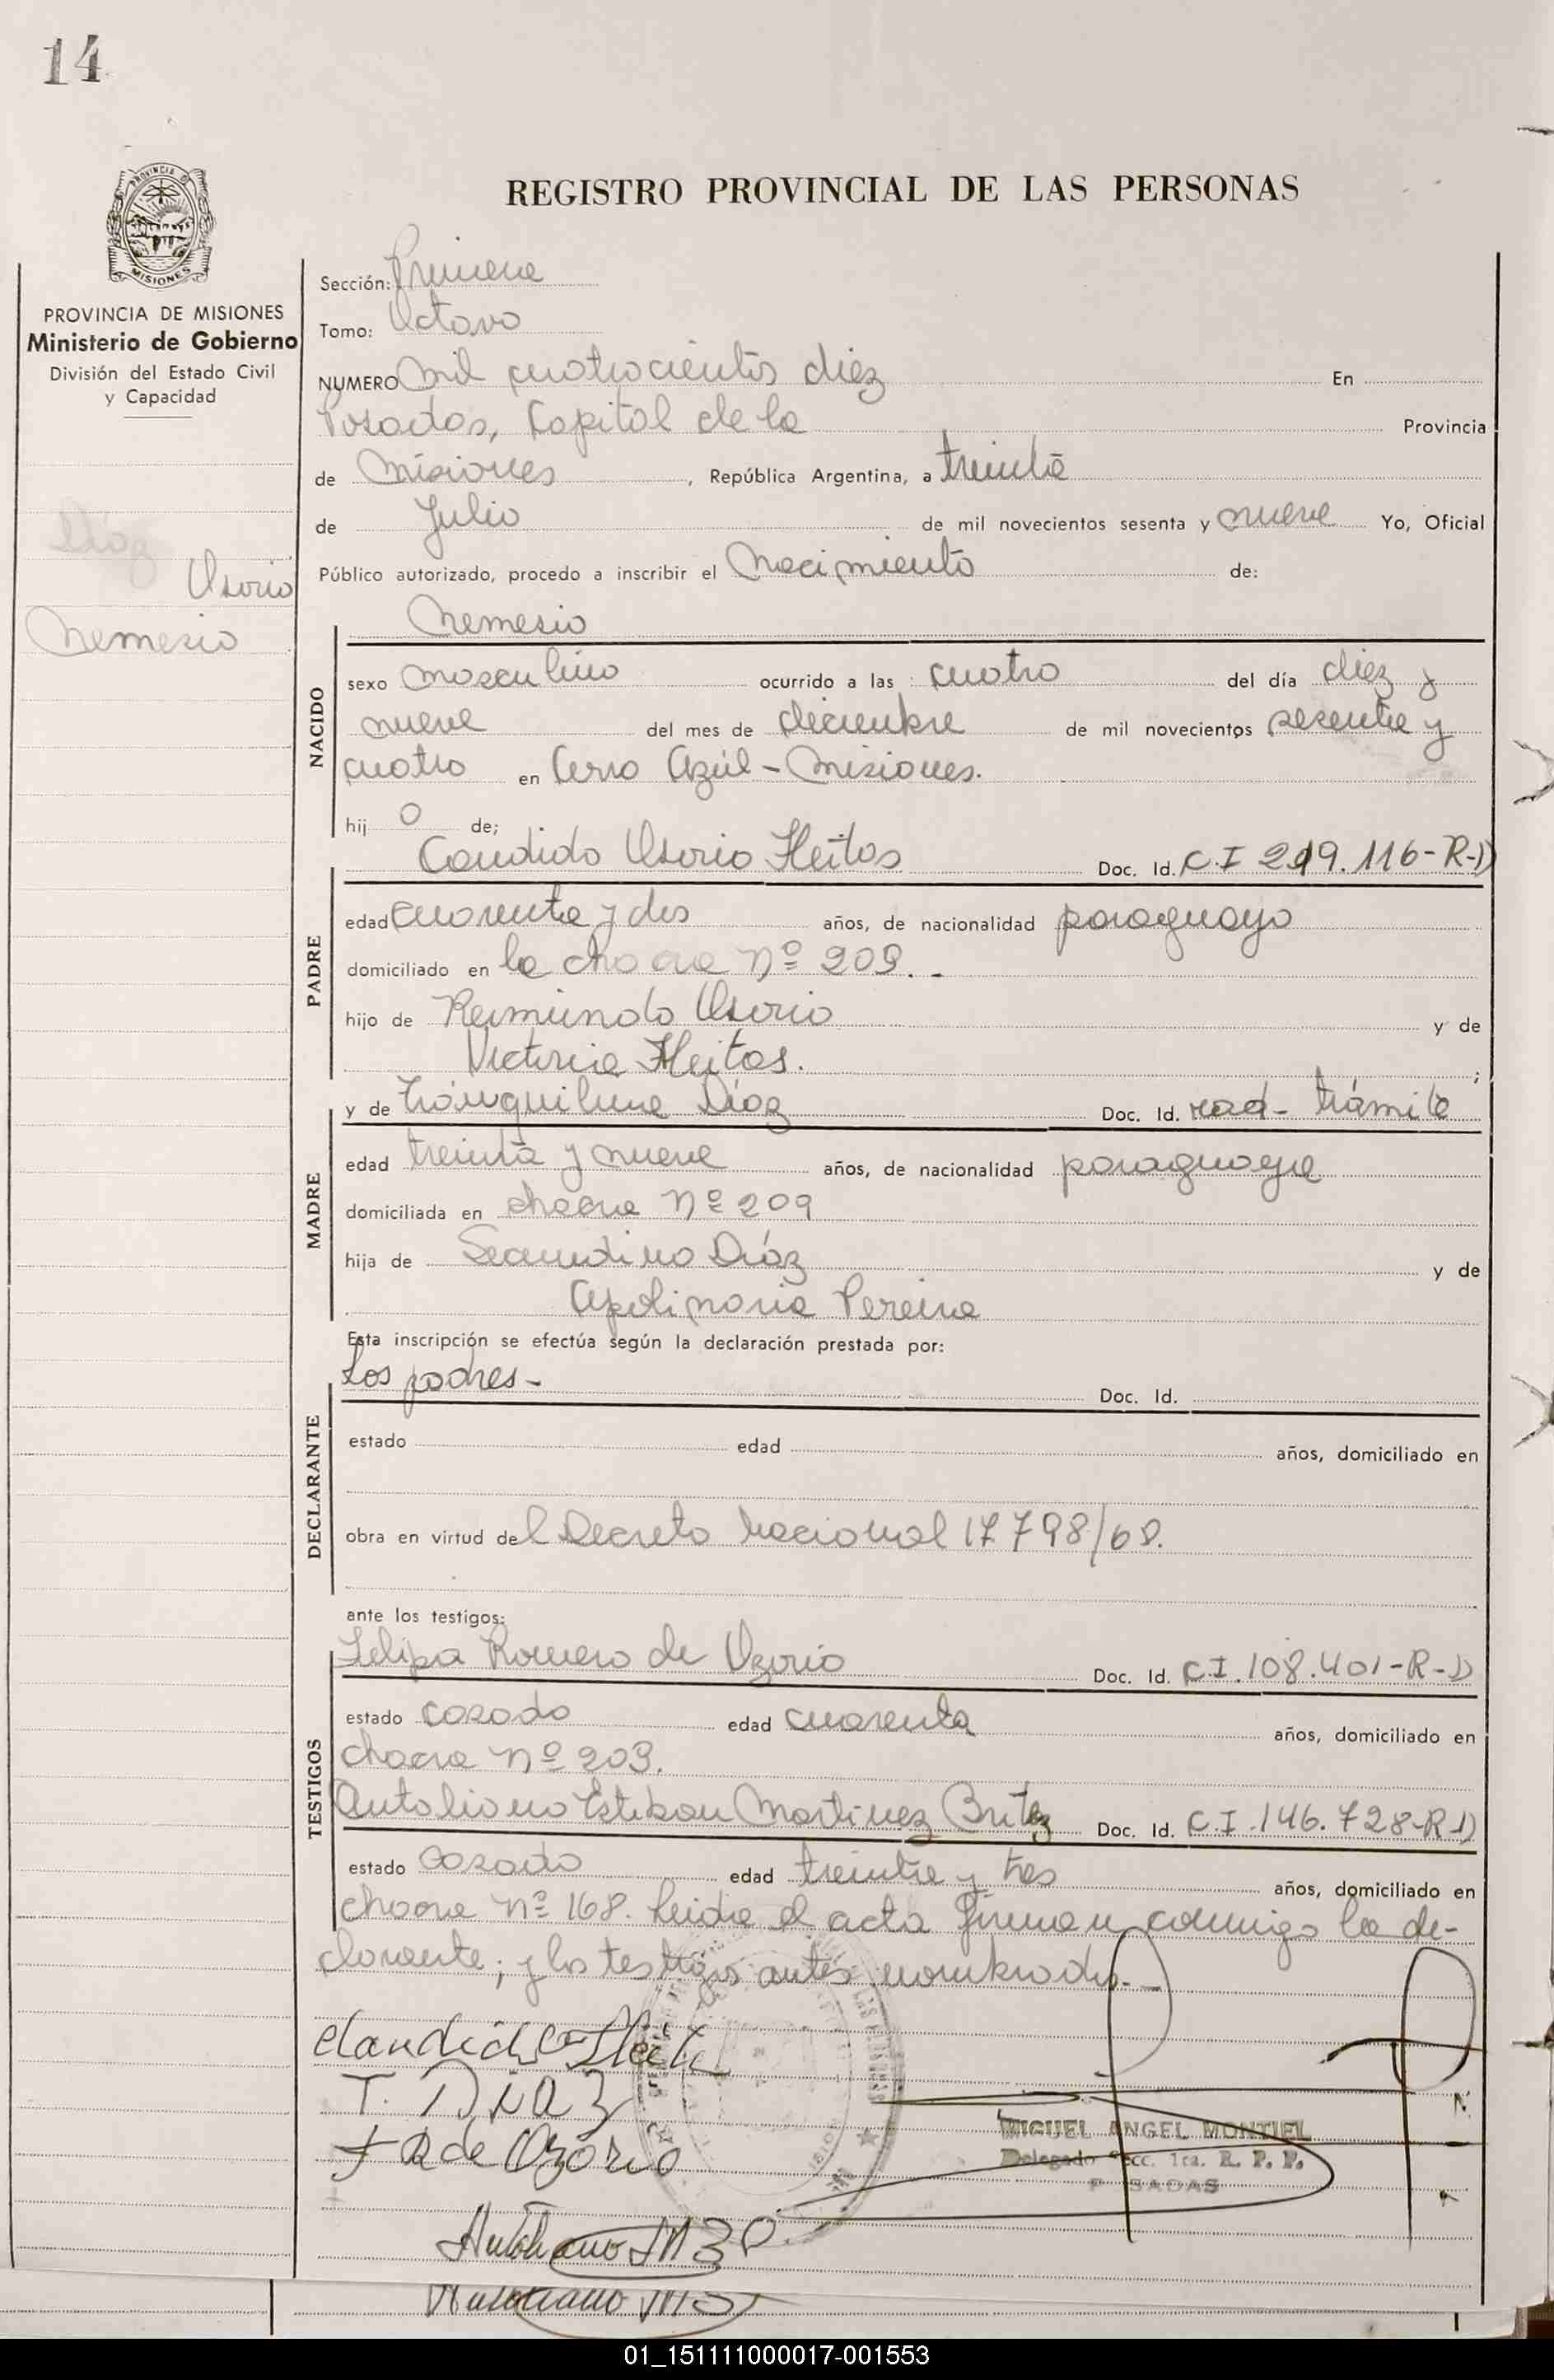 14
PROVINCIA DE MISIONES
MISIONES
PROVINCIA DE MISIONES
Ministerio de Gobierno
División del Estado Civil
y Capacidad
Díaz
Osorio
Nemesio
REGISTRO PROVINCIAL DE LAS PERSONAS
Sección: Primera
Tomo: Octavo
NUMERO Mil cuatrocientos diez En
Posadas, Capital de la Provincia
de Misiones, República Argentina, a treinta
de Julio de mil novecientos sesenta y nueve Yo, Oficial
Público autorizado, procedo a inscribir el Nacimiento de:
Nemesio
NACIDO
sexo masculino ocurrido a las cuatro del día diez y
nueve del mes de diciembre de mil novecientos sesenta y
cuatro en Cerro Azúl - Misiones.
hij o de;
Candido Osorio Fleitas Doc. Id. C.I 219.116-R-D
PADRE
edad cuarenta y dos años, de nacionalidad paraguayo
domiciliado en la chacra Nº 209. -
hijo de Reimundo Osorio y de
Victoria Fleitas. ;
y de Tránquilina Díaz Doc. Id. rad- trámite
MADRE
edad treinta y nueve años, de nacionalidad paraguaya
domiciliada en chacra Nº 209
hija de Secundino Díaz y de
Apolinaria Pereira
Esta inscripción se efectúa según la declaración prestada por:
Los padres - Doc. Id.
DECLARANTE
estado edad años, domiciliado en
obra en virtud del Decreto Nacional 17798/68.
ante los testigos:
Felipa Romero de Ozorio Doc. Id. C.I. 108.401-R-D
TESTIGOS
estado casado edad cuarenta años, domiciliado en
chacra Nº 209.
Antoliano Esteban Martinez Britez Doc. Id. C.I. 146.728-R D
estado casado edad treinta y tres años, domiciliado en
chacra nº 168. Leida el acta firman conmigo la de-
clarante; y los testigos antes nombrados. -
T. Diaz
F R de Ozorio
MIGUEL ANGEL MONTIEL
Delegado Secc. 1ra. R. P. P.
POSADAS
01_151111000017-001553